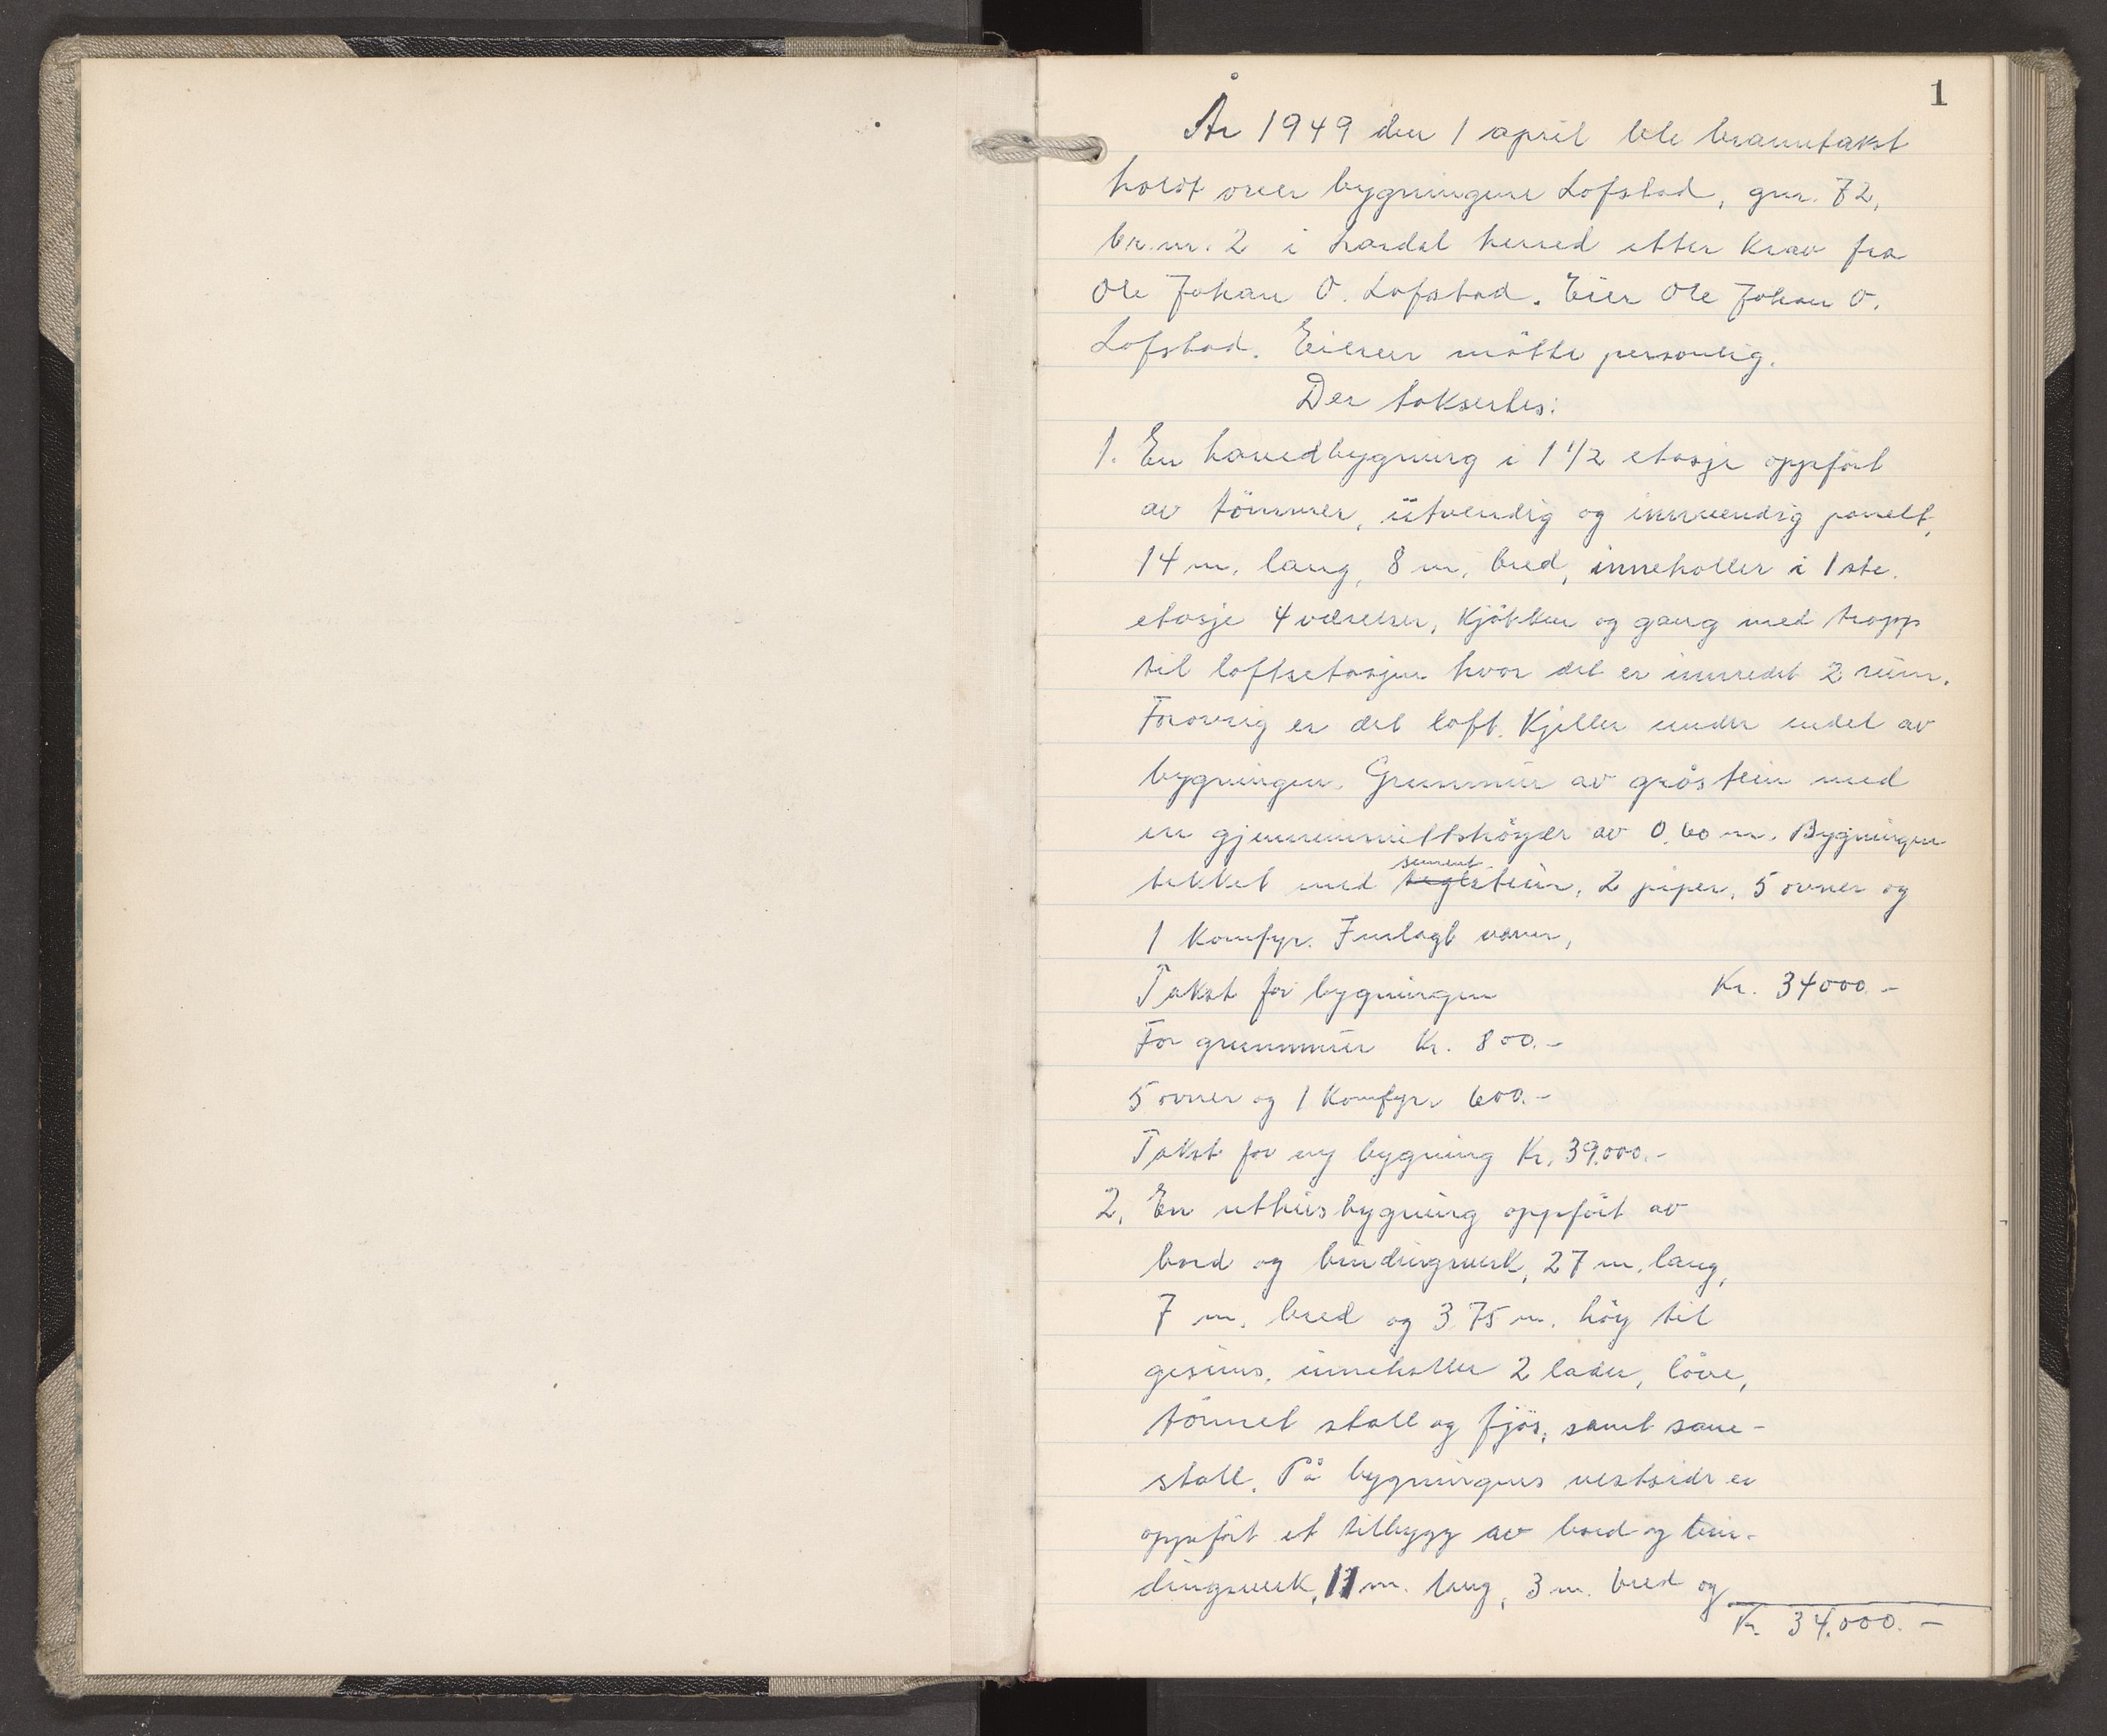 1
År 1949 den 1 april ble branntakst
holdt over bygningene Lofstad, gnr. 72,
br.nr. 2 i Lardal herred etter krav fra
Ole Johan O. Lofstad. Eier Ole Johan O.
Lofstad. Eieren mötte personlig.
Der taksertes:
1. En hovedbygning i 1 1/2 etasje oppfört
av tömmer, utvendig og innvendig panelt,
14 m. lang, 8 m. bred, inneholler i 1ste.
etasje 4 værelser, kjökken og gang med trapp
til loftsetasjen hvor det er innredet 2 rum.
Forövrig er det loft. Kjeller under endel av
bygningen. Grunnmur av gråstein med
en gjennemsnittshöyde av 0.60 m. Bygningen
sement
tekket med teglstein, 2 piper, 5 ovner og
1 komfyr. Innlagt vann,
Takst for bygningen Kr. 34000.-
For grunnmur Kr. 800.-
5 ovner og 1 komfyr 600.-
Takst for ny bygning Kr. 39.000.-
2. En uthusbygning oppfört av
bord og bindingsverk, 27 m. lang,
7 m. bred og 3.75 m. höy til
gesims, inneholler 2 lader, löve,
tömret stall og fjös, samt saue-
stall. På bygningens vestside er
oppfört et tilbygg av bord og bin-
dingsverk, 11 m. lang, 3 m. bred og
Kr. 34.000.-